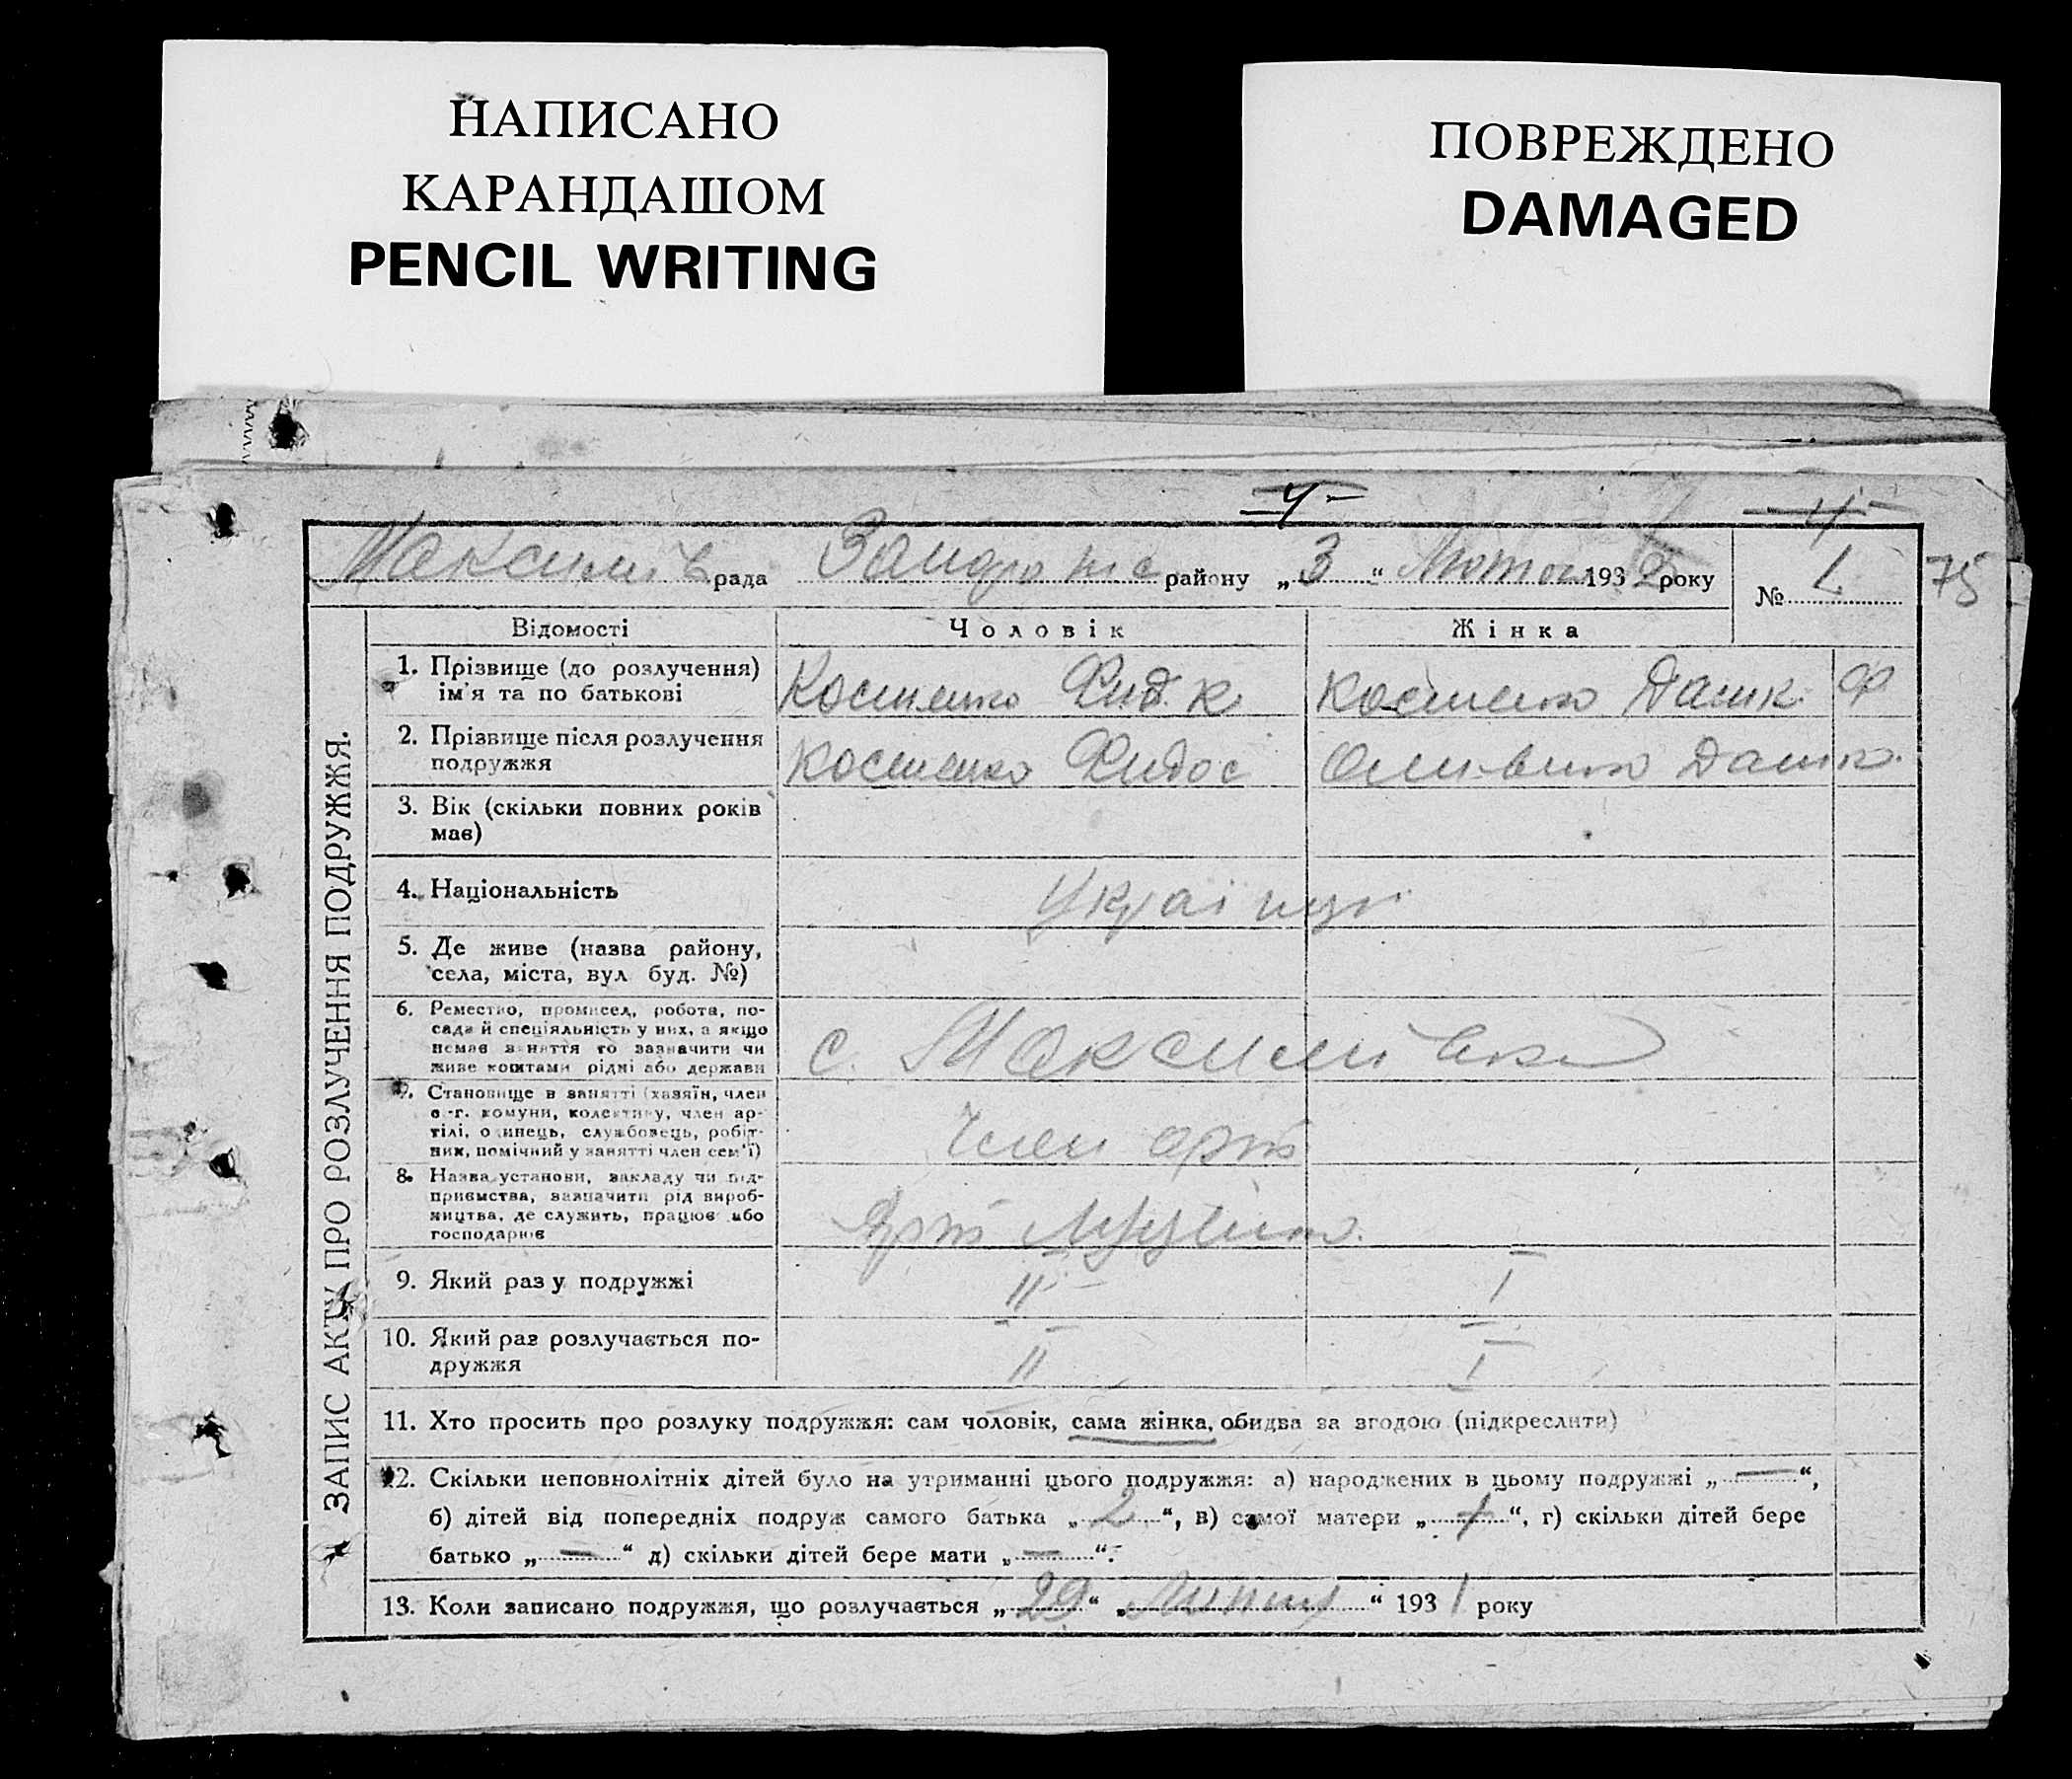 НАПИСАНО
КАРАНДАШОМ
PENCIL WRITING
ПОВРЕЖДЕНО
DAMAGED
Максимів рада районy „3“ Лютого 1932 року № 1
75
ЗАПИС АКТУ ПРО РОЗЛУЧЕННЯ ПОДРУЖЖЯ.
Відомості Чоловік Жінка
1. Прізвище (до розлучення) ім'я та по батькові
Костенко Фид. К
Костенко Дашк. Ф
2. Прізвище після розлучення подружжя
Костенко Фидос
Дашк.
3. Вік (скільки повних років має)
4. Національність
Українці
5. Де живе (назва району, села, міста, вул. буд. №)
6. Ремество, промисел, робота, посада й спеціяльність у них, а якщо немає заняття то зазначити чи живе коштами рідні або держави
с. Максимівка
7. Становище в занятті (хазяїн, член с.-г. комуни, колективу, член артілі, одинець, службовець, робітник, помічний у занятті член сем'ї)
Член арт
8. Назва установи, закладу чи підприємства, зазначити рід виробництва, де служить, працює або господарює
Арт
9. Який раз у подружжі
II
I
10. Який раз розлучається подружжя
II
I
11. Хто просить про розлуку подружжя: сам чоловік, сама жінка, обидва за згодою (підкреслити)
12. Скільки неповнолітніх дітей було на утриманні цього подружжя: а) народжених в цьому подружжі „—“,
б) дітей від попередніх подруж самого батька „2“, в) самої матери „1“, г) скільки дітей бере
батько „—“ д) скільки дітей бере мати „—“.
13. Коли записано подружжя, що розлучається „29“ „Липня“ 1931 року